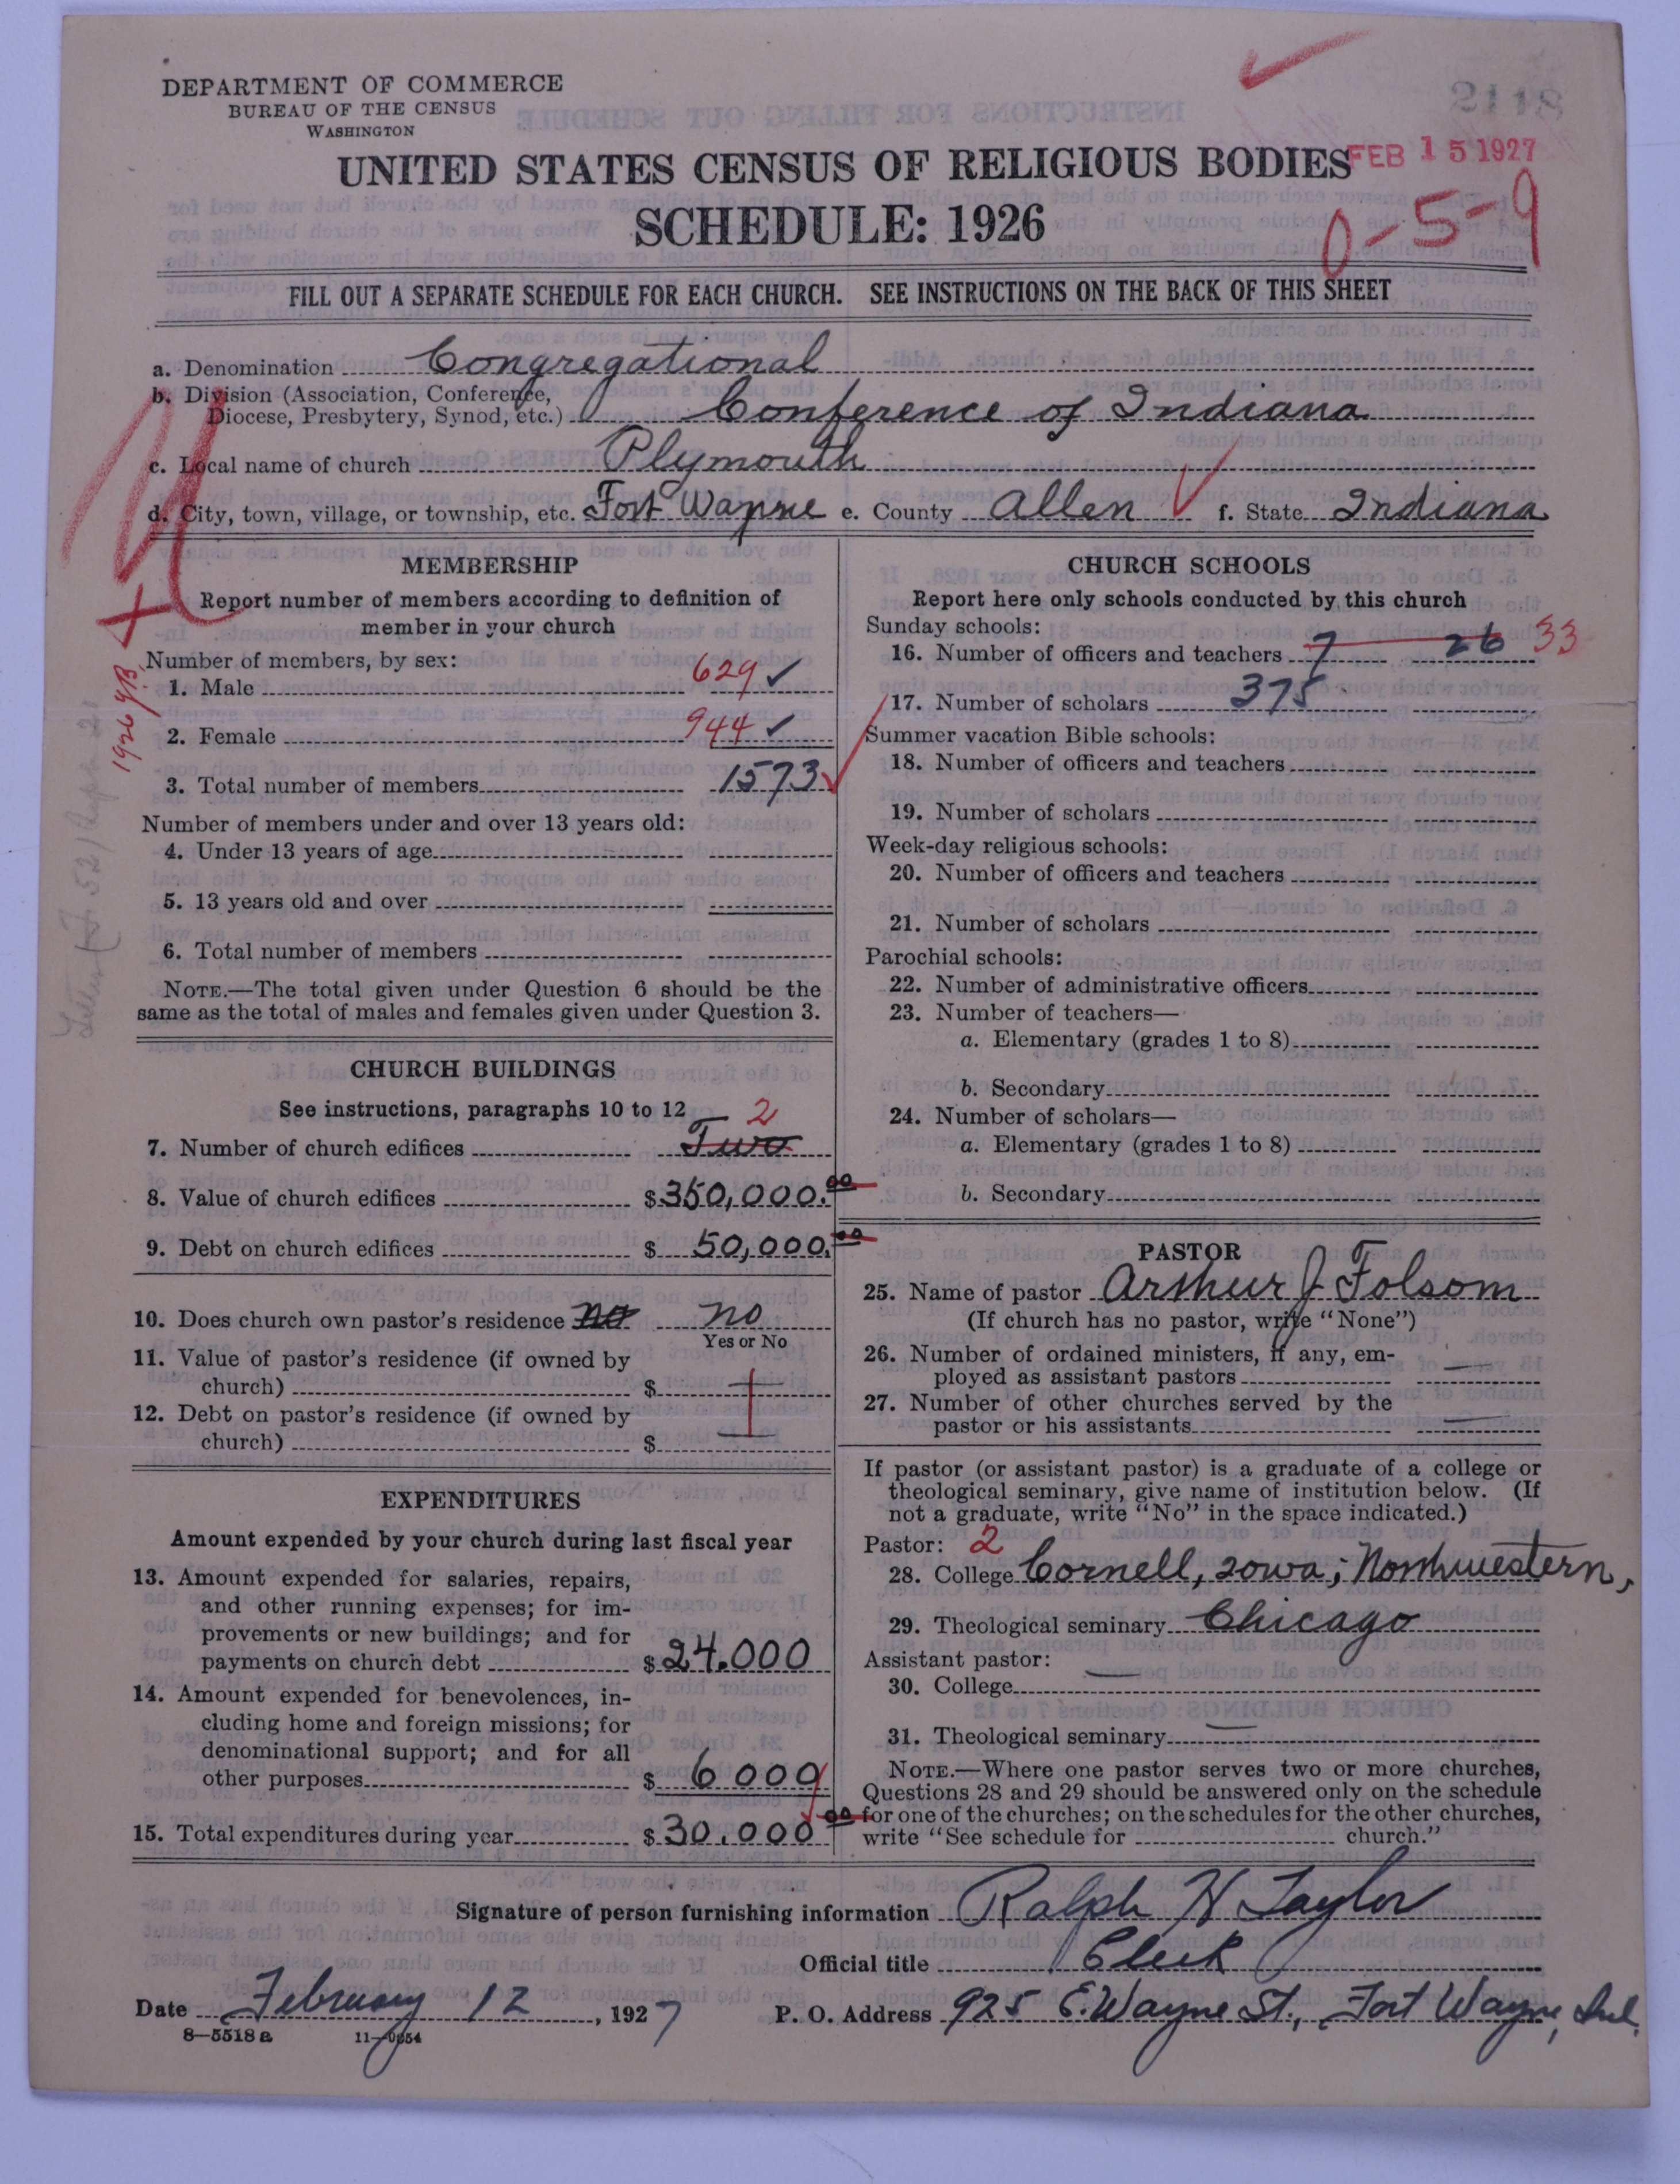 DEPARTMENT OF COMMERCE
BUREAU OF THE CENSUS
WASHINGTON
2118
UNITED STATES CENSUS OF RELIGIOUS BODIES
FEB 15 1927
SCHEDULE: 1926
0-5-9
FILL OUT A SEPARATE SCHEDULE FOR EACH CHURCH. SEE INSTRUCTIONS ON THE BACK OF THIS SHEET
a. Denomination Congregational
b. Division (Association, Conference,
Diocese, Presbytery, Synod, etc.) Conference of Indiana
c. Local name of church Plymouth
d. City, town, village, or township, etc. Fort Wayne e. County Allen f. State Indiana
MEMBERSHIP
Report number of members according to definition of
member in your church
Number of members, by sex:
1. Male 629 ✓
2. Female 944 ✓
3. Total number of members 1573
Number of members under and over 13 years old:
4. Under 13 years of age
5. 13 years old and over
6. Total number of members
NOTE.—The total given under Question 6 should be the
same as the total of males and females given under Question 3.
1926 YB
CHURCH BUILDINGS
See instructions, paragraphs 10 to 12
7. Number of church edifices Two 2
8. Value of church edifices $350,000.00
9. Debt on church edifices $50,000.00
10. Does church own pastor's residence no no
Yes or No
11. Value of pastor's residence (if owned by
church) $
12. Debt on pastor's residence (if owned by
church) $
EXPENDITURES
Amount expended by your church during last fiscal year
13. Amount expended for salaries, repairs,
and other running expenses; for im-
provements or new buildings; and for
payments on church debt $24.000
14. Amount expended for benevolences, in-
cluding home and foreign missions; for
denominational support; and for all
other purposes $6000
15. Total expenditures during year $30.000 00
CHURCH SCHOOLS
Report here only schools conducted by this church
Sunday schools:
16. Number of officers and teachers 7 26 33
17. Number of scholars 375
Summer vacation Bible schools:
18. Number of officers and teachers
19. Number of scholars
Week-day religious schools:
20. Number of officers and teachers
21. Number of scholars
Parochial schools:
22. Number of administrative officers
23. Number of teachers—
a. Elementary (grades 1 to 8)
b. Secondary
24. Number of scholars—
a. Elementary (grades 1 to 8)
b. Secondary
PASTOR
25. Name of pastor Arthur J Folsom
(If church has no pastor, write "None")
26. Number of ordained ministers, if any, em-
ployed as assistant pastors —
27. Number of other churches served by the
pastor or his assistants —
If pastor (or assistant pastor) is a graduate of a college or
theological seminary, give name of institution below. (If
not a graduate, write "No" in the space indicated.)
Pastor: 2
28. College Cornell, Iowa; Northwestern,
29. Theological seminary Chicago
Assistant pastor:
30. College —
31. Theological seminary —
NOTE.—Where one pastor serves two or more churches,
Questions 28 and 29 should be answered only on the schedule
for one of the churches; on the schedules for the other churches,
write "See schedule for church."
Signature of person furnishing information Ralph H Taylor
Official title Clerk
Date February 12, 1927 P. O. Address 925 E. Wayne St., Fort Wayne, Ind.
8—5518 a 11—9854